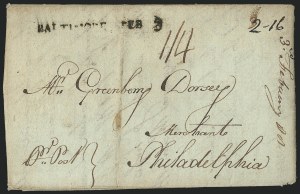 BALTIMORE FEB 3
1/4
2-16
Mr Greenberry Dorsey
Merchant
Philadelphia
Pr Post